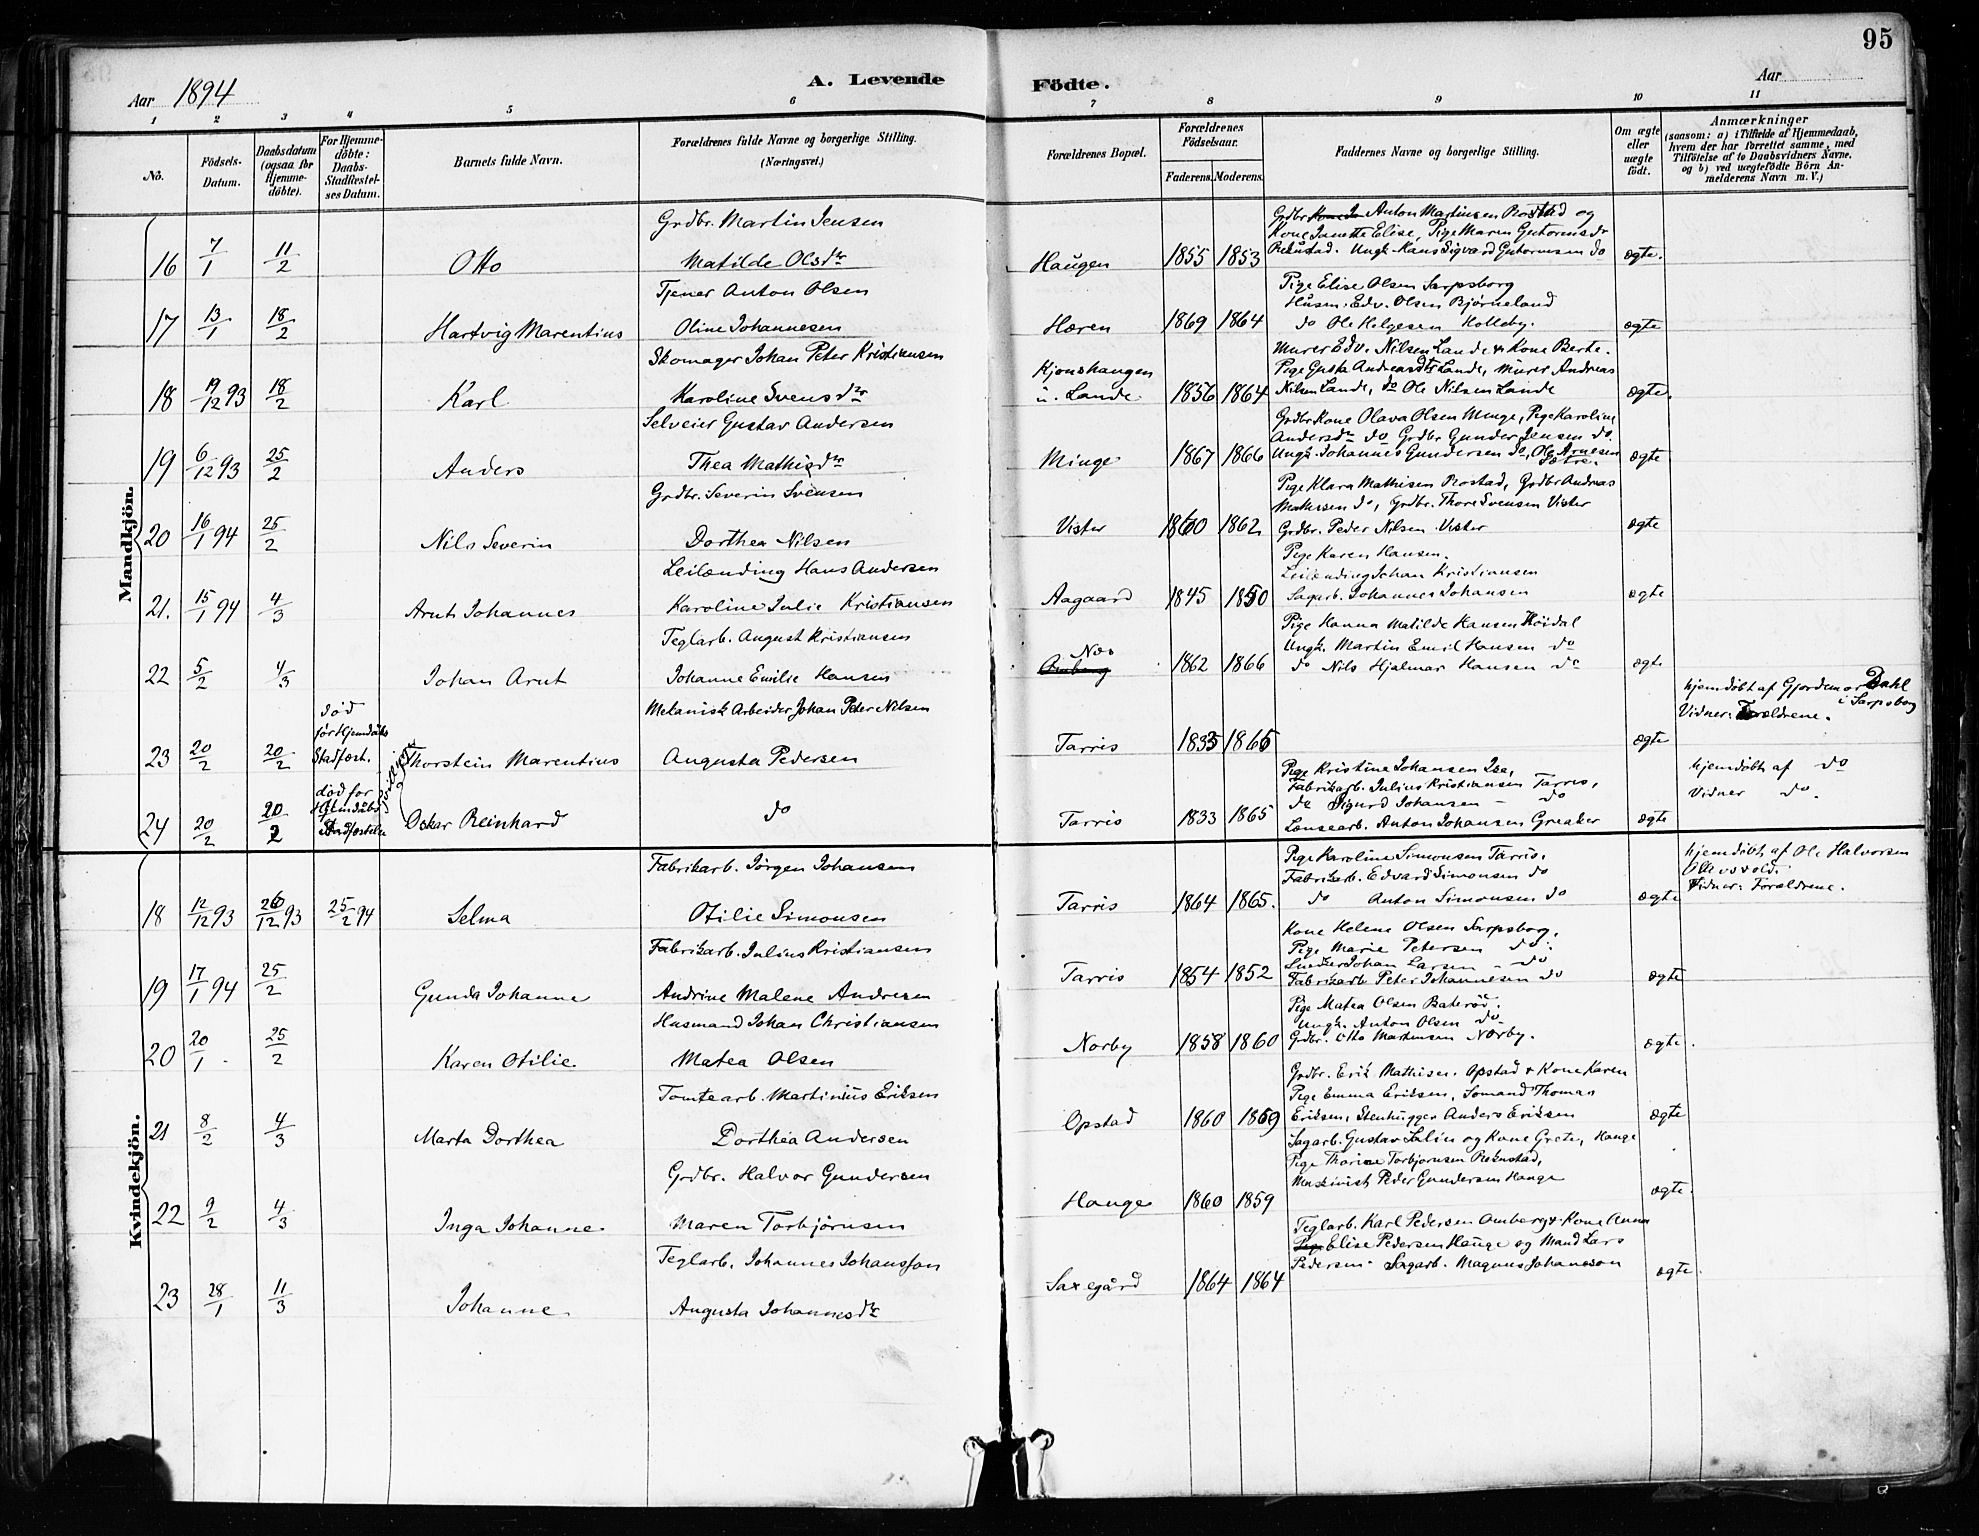 95
Aar 1894
A. Levende Födte.
Aar
1 2 3 4 5 6 7 8 9 10 11
No.
Födsels-Datum.
Daabsdatum (ogsaa for Hjemmedöbte).
For Hjemmedöbte: Daabs-Stadfæstelses Datum.
Barnets fulde Navn.
Forældrenes fulde Navne og borgerlige Stilling. (Næringsvei.)
Forældrenes Bopæl.
Forældrenes Födselsaar.
Faderens. Moderens.
Faddernes Navne og borgerlige Stilling.
Om ægte eller uægte födt.
Anmærkninger (saasom: a) i Tilfælde af Hjemmedaab, hvem der har forrettet samme, med Tilföielse af to Daabsvidners Navne, og b) ved uægtefödte Börn Anmelderens Navn m. V.)
Mandkjön.
Grdbr. Martin Jensen
Grdbr Anton Martinsen Rostad og
Kone Janette Elise, Pige Maren Gutormsdr
16 7/1 11/2 Otto Matilde Olsdr Haugen 1855 1853 Rekustad. Ungk. Hans Sigvard Gutormsen do ægte.
Tjener Anton Olsen
Pige Elise Olsen Sarpsborg
Husm. Edv. Olsen Bjørneland
17 13/1 18/2 Hartvig Marentius Oline Johannesen Hæren 1869 1864 do Ole Helgesen Holleby. ægte
Skomager Johan Peter Kristiansen
Murer Edv. Nilsen Lande & Kone Berte.
Kjonshaugen
Pige Gusta Andreasdtr Lande, Murer Andreas
18 19/12 93 18/2 Karl Karoline Svensdr u. Lande 1856 1864 Nilsen Lande, do Ole Nilsen Lande ægte.
Selveier Gustav Andersen
Grdbr Kone Olava Olsen Minge, Pige Karoline
Andersdr do Grdbr Gunder Jensen do.
19 6/12 93 25/2 Anders Thea Mathisdr Minge 1867 1866 Ungk. Johannes Gundersen do, Ole Arnesen Sætre. ægte
Grdbr. Severin Svensen
Pige Klara Mathisen Rostad, Grdbr Andreas
Mathisen do, Grdbr. Thore Svensen Vister
20 16/1 94 25/2 Nils Severin Dorthea Nilsen Vister 1860 1862 Grdbr. Peder Nilsen Vister ægte
Leilænding Hans Andersen
Pige Karen Hansen.
Leilænding Johan Kristiansen
21. 15/1 94 4/3 Arnt Johannes Karoline Julie Kristiansen Aagaard 1845 1850 Sagarb. Johannes Johansen ægte
Teglarb. August Kristiansen
Pige Hanna Matilde Hansen Høidal
Ungk. Martin Emil Hansen do
22 5/2 4/3 Johan Arnt Johanne Emilie Hansen Næs 1862 1866 do Nils Hjalmar Hansen do ægte
Mekanisk Arbeider Johan Peter Nilsen
død før Hjemdåbs Stadfæst.
hjemdøbt af Gjordemor Dahl i Sarpsborg
Vidner: Forældrene.
23 20/2 20/2 Thorstein Marentius Augusta Pedersen Tarris 1833 1865 ægte
Tvillinger
død for Hjemdåbs Stadfæstelse
Pige Kristine Johansen Ise,
Fabrikarb. Julius Kristiansen Tarris,
do Sigurd Johansen - do
hjemdøbt af do
Vidner do.
24 20/2 20/2 Oskar Reinhard do Tarris 1833 1865 Lænsearb. Anton Johansen Greaker ægte
Kvindekjön.
Fabrikarb. Jørgen Johansen
Pige Karoline Simonsen Tarris.
Fabrikarb. Edvard Simonsen do
hjemdøbt af Ole Halvorsen
Vidner: Forældrene.
18 12/12 93 26/12 93 25/2 94 Selma Otilie Simonsen Tarris 1864 1865. do Anton Simonsen do ægte
Fabrikarb. Julius Kristiansen
Kone Helene Olsen Sarpsborg.
Pige Marie Petersen do.
Snedker Johan Larsen - do
19 17/1 94 25/2 Gunda Johanne Andrine Malene Andresen Tarris 1854 1852 Fabrikarb Peter Johannesen do ægte
Husmand Johan Christiansen
Pige Matea Olsen Baterød.
Ungk. Anton Olsen do
20 20/1 25/2 Karen Otilie Matea Olsen Norby 1858 1860 Grdbr. Otto Martinsen Norby. ægte.
Tomtearb. Martinius Eriksen
Grdbr. Erik Mathisen Opstad & Kone Karen
Pige Emma Eriksen, Sømand Thomas
21 8/2 4/3 Marta Dorthea Dorthea Andersen Opstad 1860 1869 Eriksen, Stenhugger Anders Eriksen ægte
Grdbr. Halvor Gundersen
Sagarb. Gustav Salin og Kone Grete, Hauge
Pige Thorine Torbjørnsen Rekustad,
Maskinist Peder Gundersen Hauge
22 9/2 4/3 Inga Johanne Maren Torbjørnsen Hauge 1860 1859 ægte.
Teglarb. Johannes Johansson
Teglarb. Karl Pedersen Omberg & Kone Anna
Elise Pedersen Hauge og Mand Lars
23 28/1 11/3 Johanne Augusta Johannesdr Saxegård 1864 1864 Pedersen. Sagarb. Magnus Johansson ægte.